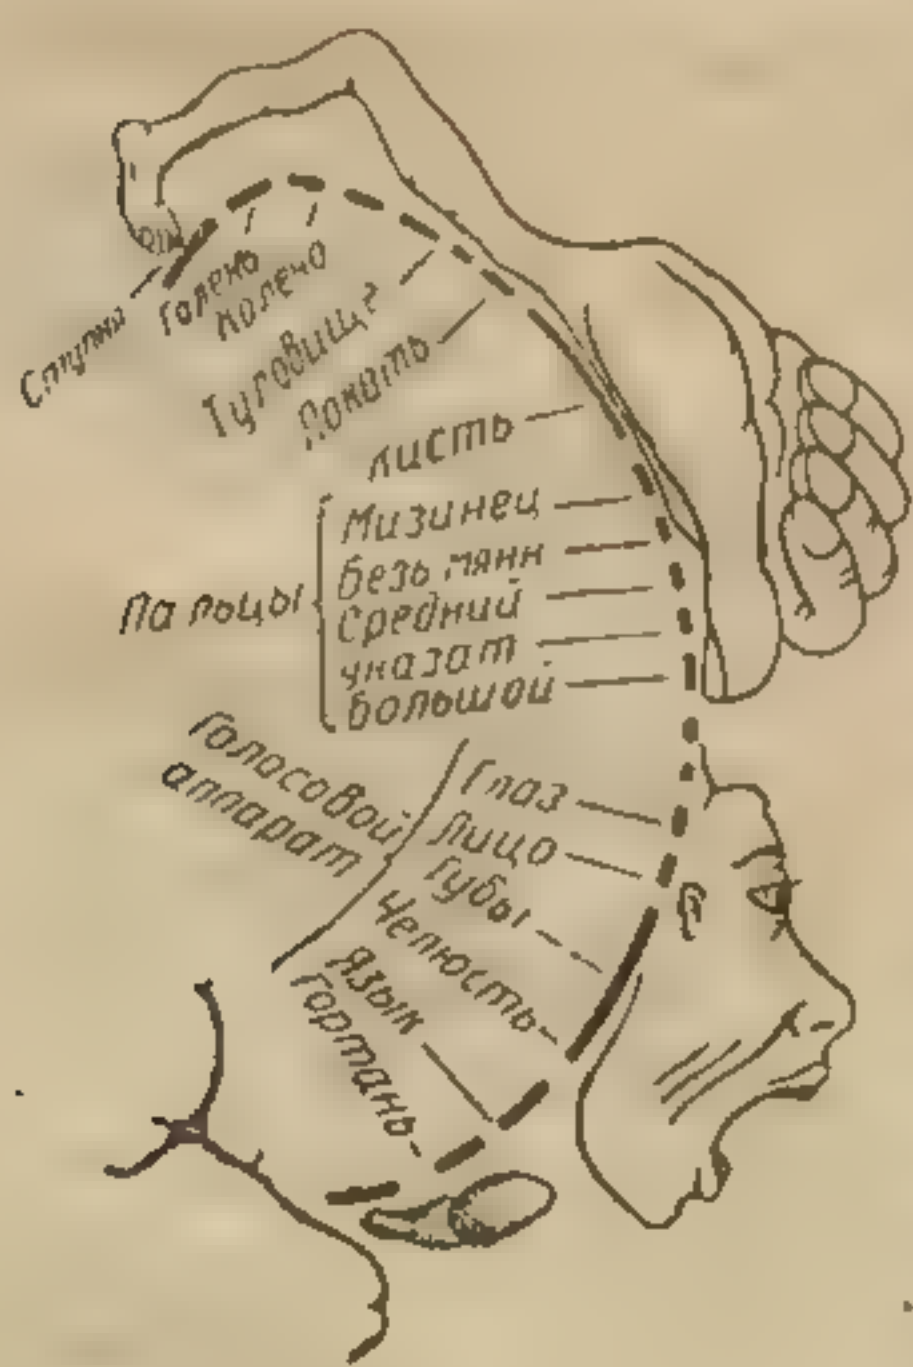 Ступня
Голень
Колено
Туловище
Локоть
Кисть
Пальцы
Мизинец
Безымянн
Средний
Указат
Большой
Голосовой
аппарат
Глаз
Лицо
Губы
Челюсть
Язык
Гортань